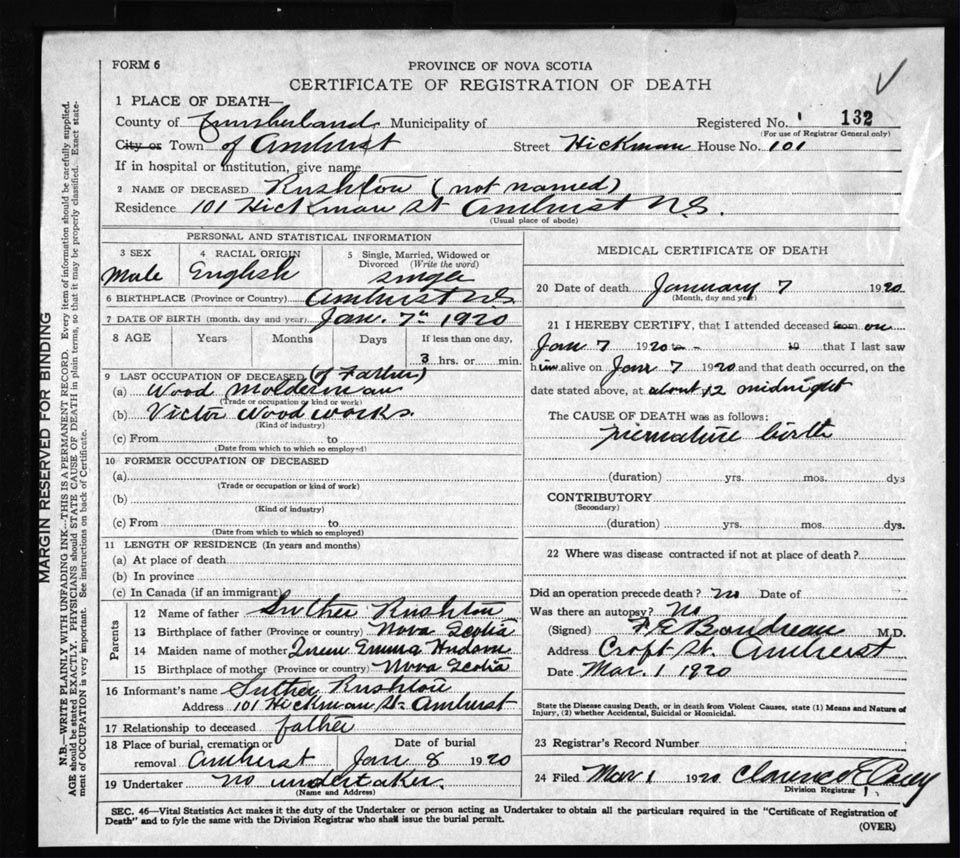 FORM 6
PROVINCE OF NOVA SCOTIA
CERTIFICATE OF REGISTRATION OF DEATH
1 PLACE OF DEATH—
County of Cumberland Municipality of Registered No. 132
(For use of Registrar General only)
City or Town of Amherst Street Hickman House No. 101
If in hospital or institution, give name
2 NAME OF DECEASED Rushton (not named)
Residence 101 Hickman St Amherst N.S.
(Usual place of abode)
PERSONAL AND STATISTICAL INFORMATION
3 SEX Male
4 RACIAL ORIGIN English
5 Single, Married, Widowed or Divorced (Write the word) single
6 BIRTHPLACE (Province or Country) Amherst NS
7 DATE OF BIRTH (month, day and year) Jan. 7th 1920
8 AGE Years Months Days If less than one day,
3 hrs. or min.
9 LAST OCCUPATION OF DECEASED (of Father)
(a) Wood Molderman
(Trade or occupation or kind or work)
(b) Victor Wood works.
(Kind of industry)
(c) From to
(Date from which to which so employed)
10 FORMER OCCUPATION OF DECEASED
(a)
(Trade or occupation or kind of work)
(b)
(Kind of industry)
(c) From to
(Date from which to which so employed)
11 LENGTH OF RESIDENCE (In years and months)
(a) At place of death
(b) In province
(c) In Canada (if an immigrant)
Parents
12 Name of father Luther Rushton
13 Birthplace of father (Province or country) Nova Scotia
14 Maiden name of mother Emma Hudson
15 Birthplace of mother (Province or country) Nova Scotia
16 Informant's name Luther Rushton
Address 101 Hickman St. Amherst
17 Relationship to deceased father
18 Place of burial, cremation or Date of burial
removal Amherst Jan 8 1920
19 Undertaker no undertaker.
(Name and Address)
MEDICAL CERTIFICATE OF DEATH
20 Date of death January 7 1920
(Month, day and year)
21 I HEREBY CERTIFY, that I attended deceased from on
Jan 7 1920 to 19 that I last saw
him alive on Jan 7 1920 and that death occurred, on the
date stated above, at about 12 midnight
The CAUSE OF DEATH was as follows:
premature birth
(duration) yrs. mos. dys
CONTRIBUTORY
(Secondary)
(duration) yrs. mos. dys.
22 Where was disease contracted if not at place of death?
Did an operation precede death? No Date of
Was there an autopsy? No
(Signed) F E Boudreau M.D.
Address Croft St. Amherst
Date Mar. 1 1920
State the Disease causing Death, or in death from Violent Causes, state (1) Means and Nature of
Injury, (2) whether Accidental, Suicidal or Homicidal.
23 Registrar's Record Number
24 Filed Mar 1 1920 Clarence E Casey
Division Registrar
SEC. 46—Vital Statistics Act makes it the duty of the Undertaker or person acting as Undertaker to obtain all the particulars required in the "Certificate of Registration of
Death" and to fyle the same with the Division Registrar who shall issue the burial permit.
(OVER)
MARGIN RESERVED FOR BINDING
N.B.—WRITE PLAINLY WITH UNFADING INK—THIS IS A PERMANENT RECORD. Every item of information should be carefully supplied.
AGE should be stated EXACTLY. PHYSICIANS should STATE CAUSE OF DEATH in plain terms, so that it may be properly classified. Exact state-
ment of OCCUPATION is very important. See instructions on back of Certificate.